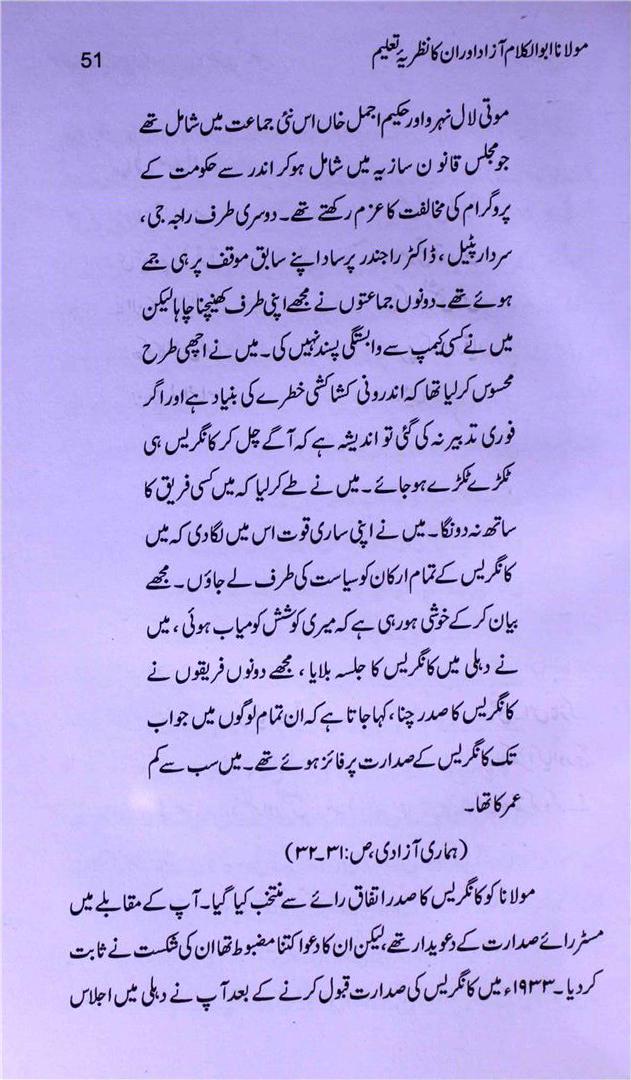 مولانا ابوالکلام آزاد اور ان کا نظریۂ تعلیم
51
موتی لال نہرو اور حکیم اجمل خاں اس نئی جماعت میں شامل تھے
جو مجلس قانون سازیہ میں شامل ہوکر اندر سے حکومت کے
پروگرام کی مخالفت کا عزم رکھتے تھے۔ دوسری طرف راجہ جی،
سردار پٹیل، ڈاکٹر راجندر پرساد اپنے سابق موقف پر ہی جمے
ہوئے تھے۔ دونوں جماعتوں نے مجھے اپنی طرف کھینچنا چاہا لیکن
میں نے کسی کیمپ سے وابستگی پسند نہیں کی۔ میں نے اچھی طرح
محسوس کرلیا تھا کہ اندرونی کشاکشی خطرے کی بنیاد ہے اور اگر
فوری تدبیر نہ کی گئی تو اندیشہ ہے کہ آگے چل کر کانگریس ہی
ٹکڑے ٹکڑے ہوجائے۔ میں نے طے کرلیا کہ میں کسی فریق کا
ساتھ نہ دونگا۔ میں نے اپنی ساری قوت اس میں لگادی کہ میں
کانگریس کے تمام ارکان کو سیاست کی طرف لے جاؤں۔ مجھے
بیان کرکے خوشی ہورہی ہے کہ میری کوشش کومیاب ہوئی، میں
نے دہلی میں کانگریس کا جلسہ بلایا، مجھے دونوں فریقوں نے
کانگریس کا صدر چنا، کہا جاتا ہے کہ ان تمام لوگوں میں جو اب
تک کانگریس کے صدارت پر فائز ہوئے تھے۔ میں سب سے کم
عمر کا تھا۔
(ہماری آزادی، ص: ۳۱۔۳۲)
مولانا کو کانگریس کا صدر اتفاق رائے سے منتخب کیا گیا۔ آپ کے مقابلے میں
مسٹر رائے صدارت کے دعویدار تھے، لیکن ان کا دعوا کتنا مضبوط تھا ان کی شکست نے ثابت
کردیا۔ ۱۹۳۳ء میں کانگریس کی صدارت قبول کرنے کے بعد آپ نے دہلی میں اجلاس